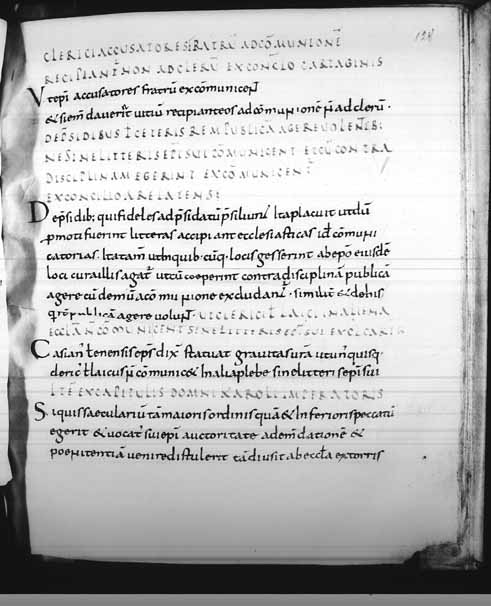 124
CLERICI ACCUSATORES FRATRŪ AD CŌMUNIONĒ
RECIPIANT̄ NON AD CLERŪ EX CONCLIO CARTAGINIS
Ut ep̄i accusatores fratrū excōmunicen̄t
& si em̄daverit̄ vitiū recipiant eos ad cōmunionē n̄ ad clerū.
DE P̄SIDIBUS ł CETERIS REM PUBLICĀ AGERE VOLENTIB;
NE SINE LITTERIS EP̄I SUI CŌMUNICENT ET CŪ CONTRA
DISCIPLINAM EGERINT EXCŌMUNICENT̄
EX CONCILIO ARELATENSI;
De p̄sidib; qui fideles ad p̄sidatū p̄siliun̄t Ita placuit ut dū
p̱moti fuerint litteras accipiant ecclesiasticas id̄ cōmuni
catorias. Ita tam̄ ut in quib; cūq. locis gesserint ab ep̄o eiusdē
loci cura illis agat̄ ut cū coeperint contra disciplinā publicā
agere tū demū a cōmunione excludant̄. similit̄ & de his
qui rē publicā agere volun̄t. UT CLERICI ł LAICI IN ALIENA
ECCLĀ N̄ CŌMUNICENT SINE LITTERIS EP̄I SUI EX C̄ CARTG
Casian̄ ł enensis ep̄s dix̄ statuat gravitas v̄ra ut unquisq;
cleric̄ ł laicus n̄ cōmunic& In aliā plebe sine litteris ep̄i sui
ITĒ EX CAPITULIS DOMNI KAROLI IMPERATORIS
Si quis saecularium tā maioris ordinis quā & Inferioris peccatū
egerit & vocat̄ sui ep̄i auctoritate ad em̄dationē &
poenitentiā venire distulerit tādiu sit ab eccła extorris